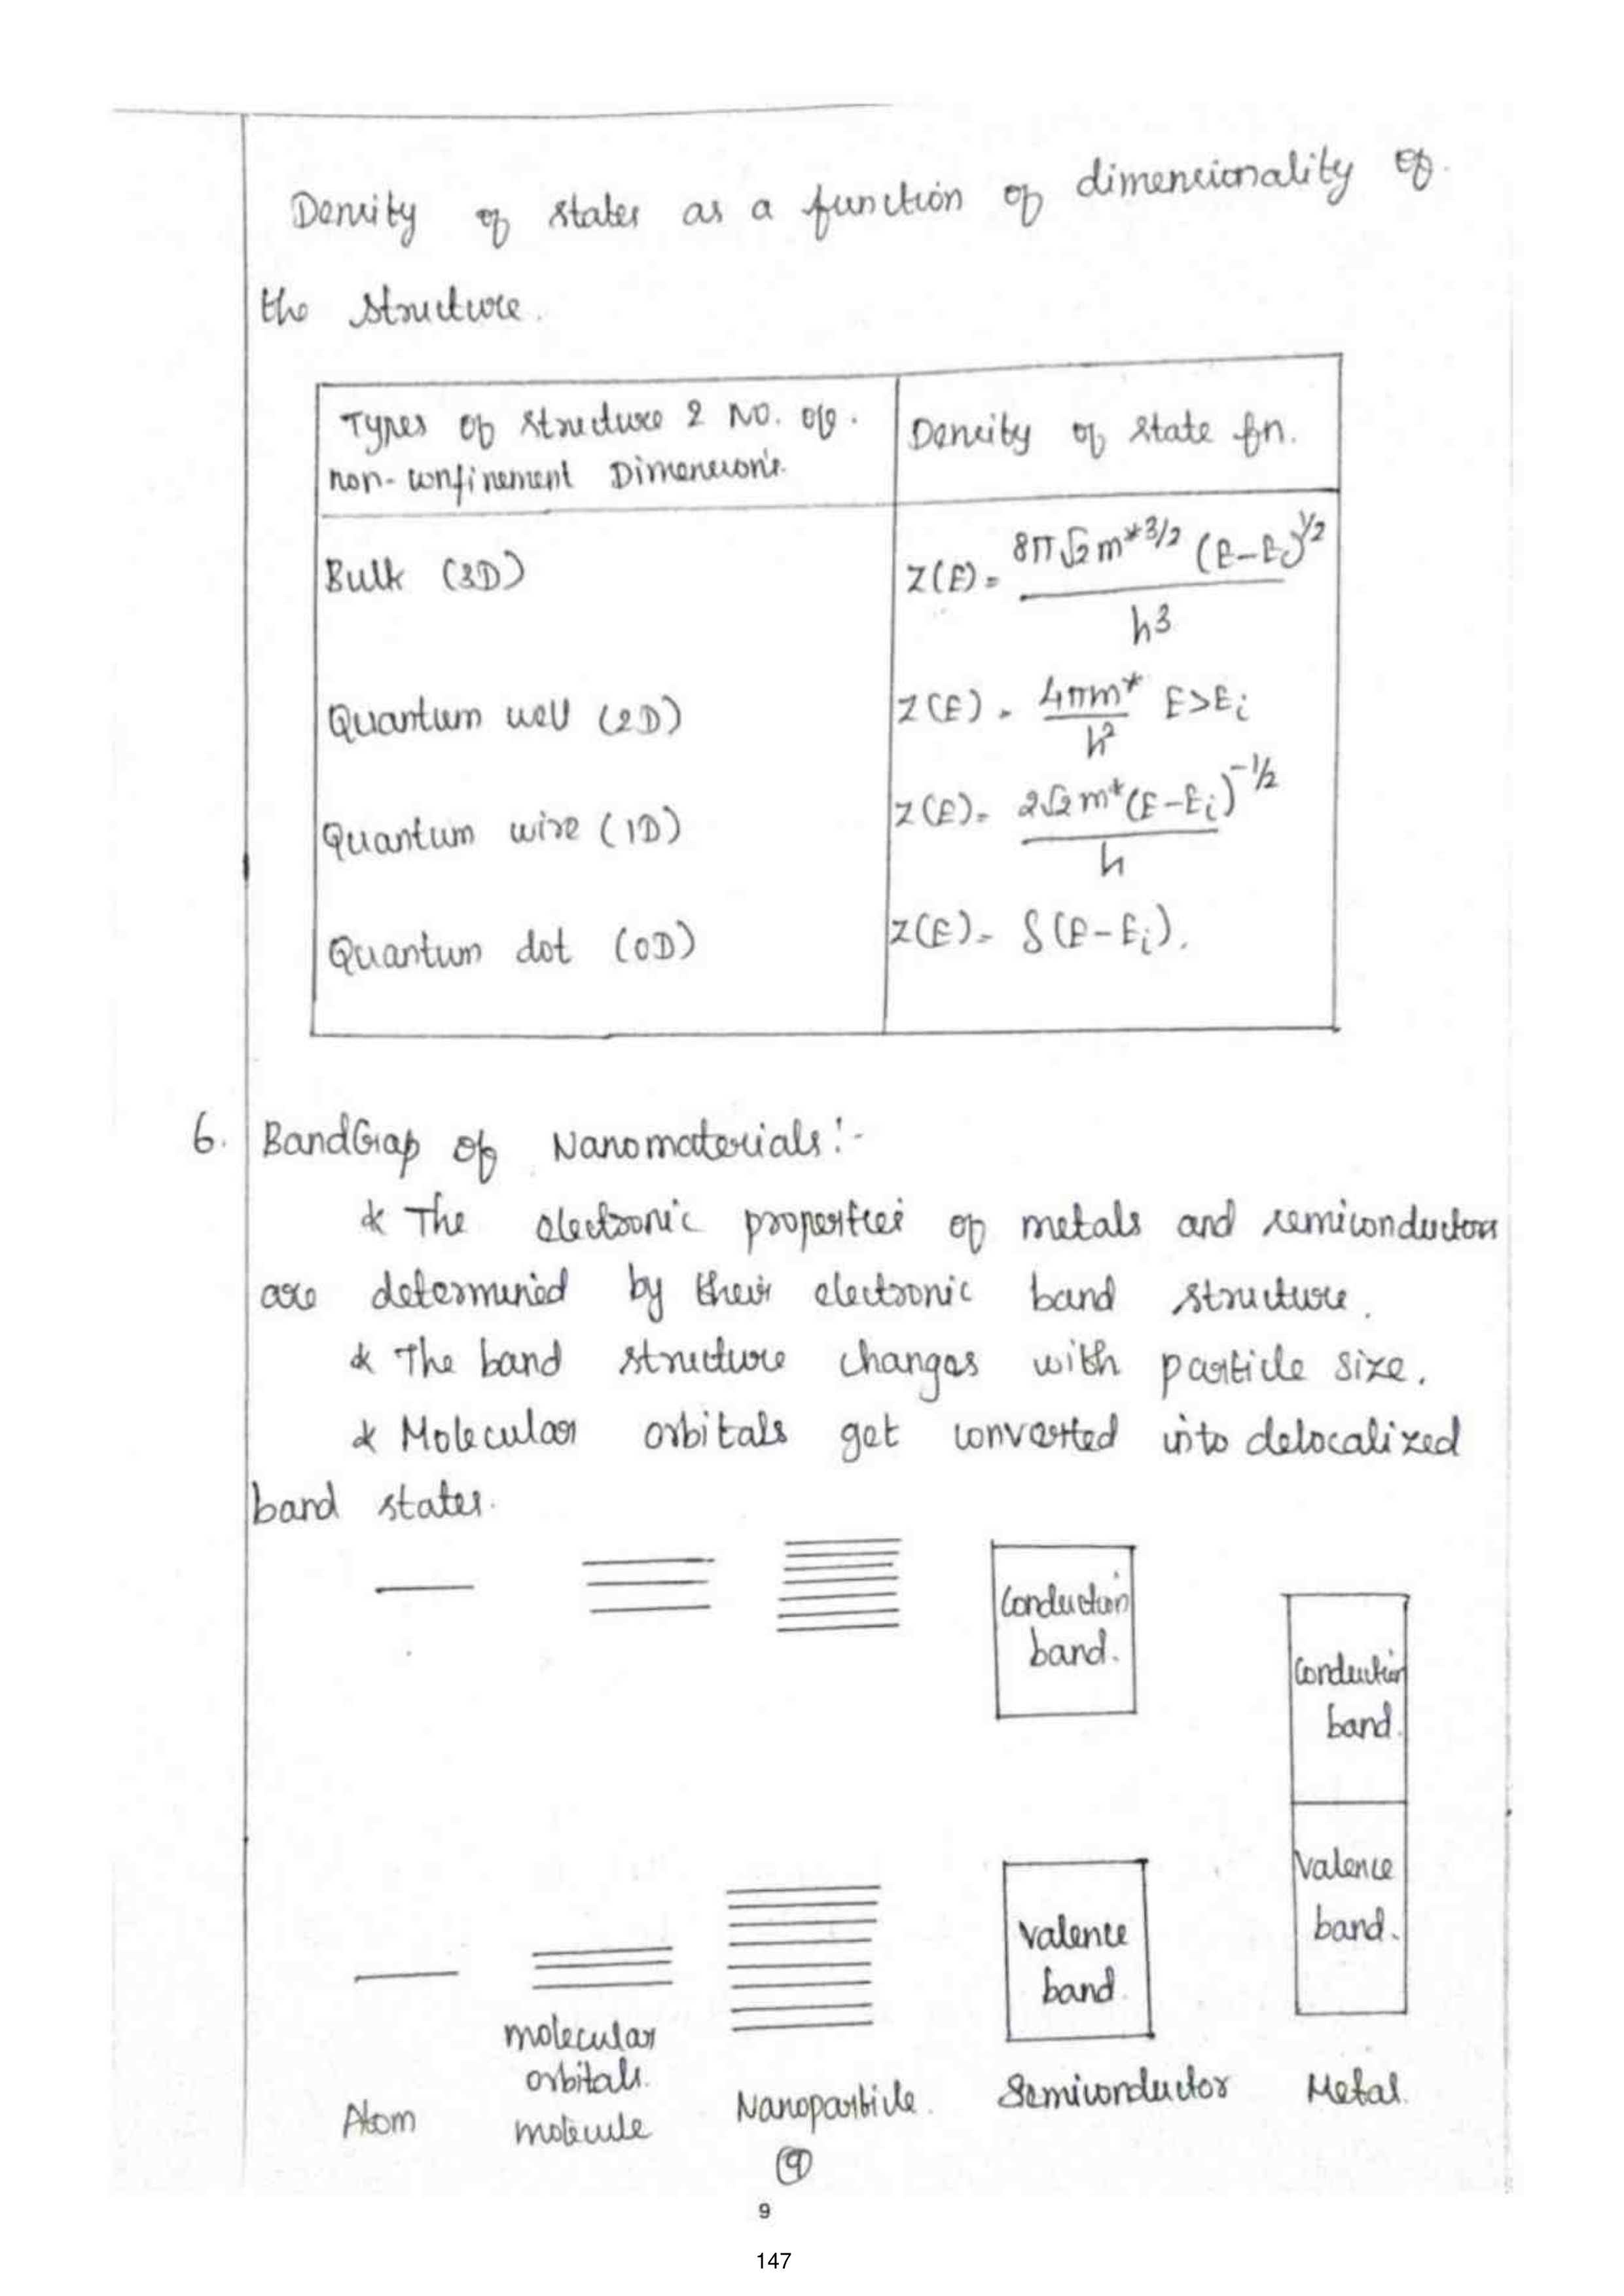 Density of states as a function of dimensionality of
the structure.
Types of structure & No. of.
non-confinement Dimension's.
Density of state fn.
Bulk (3D)
Z(E) = 8π√2 m*3/2 (E-Ec)1/2 / h3
Quantum well (2D)
Z(E) = 4πm* / h2 E>Ei
Quantum wire (1D)
Z(E) = 2√2 m*(E-Ei)-1/2 / h
Quantum dot (0D)
Z(E) = δ(E-Ei).
6. BandGap of Nanomaterials:-
* The electronic properties of metals and semiconductors
are determined by their electronic band structure.
* The band structure changes with particle size.
* Molecular orbitals get converted into delocalized
band states.
Conduction
band.
Conduction
band.
Valence
band.
Valence
band.
Atom
molecular
orbitals.
molecule
Nanoparticle.
Semiconductor
Metal.
9
9
147